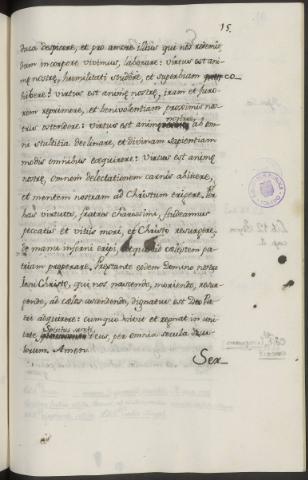 15.
deia despicere, et pro amore illius qui nos redemit
dum incorpore vivimus, laborare: virtus est ani-
mę nostrę, humilitati studere, et superbiam co-
hibere: virtus est animę nostrę, iram et furo-
rem reprimere, et benivolentiam proximis nos-
tris ostendere: virtus est animę nostrę ab om-
ni stultitia declinare, et divinam sapientiam
modis omnibus exquirere: virtus est animę
nostrę, omnem delectationem carnis abiicere,
et mentem nostram ad Christum erigere. Per
has virtutes, fratres charissimi, studeamus
peccatis et vitiis mori, et Christo resurgere,
de manu inferni eripi, et ad cœlestem pa-
triam properare. Prestante eodem Domino nostro
Iesu Christo, qui nos nascendo, moriendo, resur-
gendo, ad cœlos ascendendo, dignatus est Deo Pa-
tri adquirere: cumquo vivit et regnat in uni-
tate Spiritus sancti, Deus, per omnia secula secu-
lorum. Amen.
Ser-